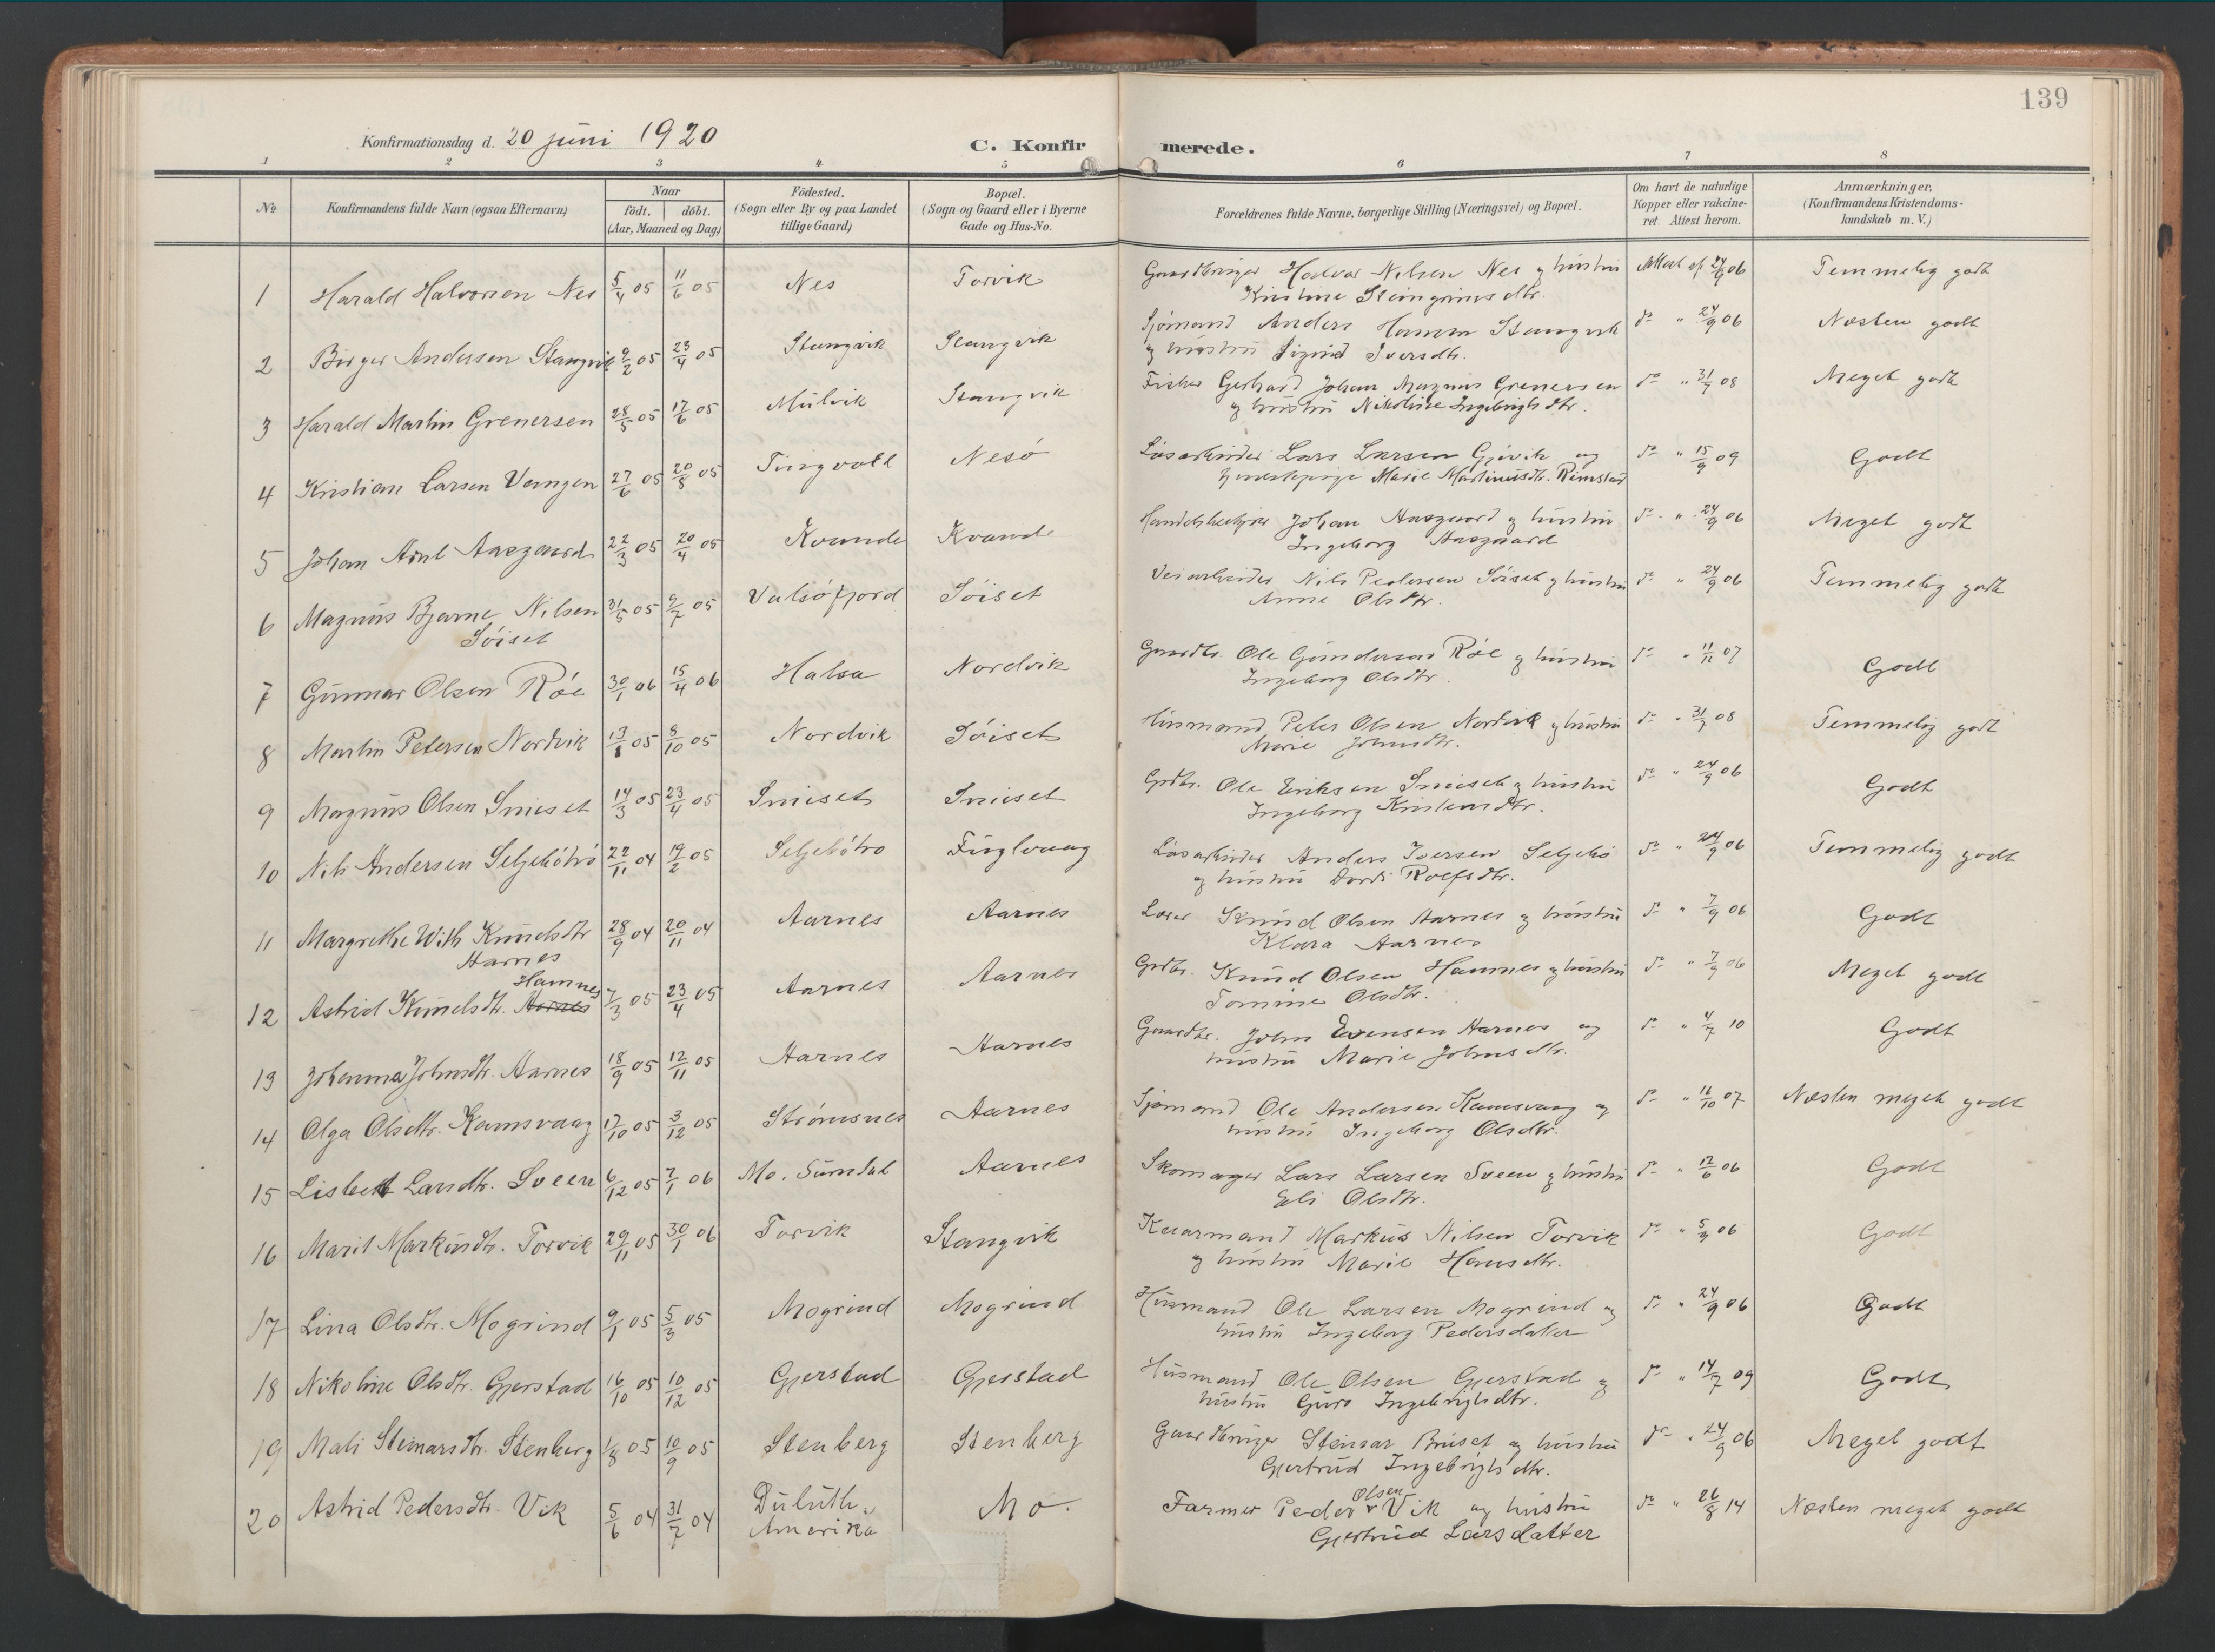 139
Konfirmationsdag d. 20 juni 1920
C. Konfirmerede.
1 2 3 4 5 6 7 8
No
Konfirmandens fulde Navn (ogsaa Efternavn)
Naar
födt. | döbt.
(Aar, Maaned og Dag)
Födested.
(Sogn eller By og paa Landet
tillige Gaard)
Bopæl.
(Sogn og Gaard eller i Byerne
Gade og Hus-No.
Forældrenes fulde Navne, borgerlige Stilling (Næringsvei) og Bopæl.
Om havt de naturlige
Kopper eller vakcine-
ret. Attest herom.
Anmærkninger.
(Konfirmandens Kristendoms-
kundskab m. V.)
1 Harald Halvorsen Nes 5/4 05 11/6 05 Nes Torvik Gaardbruger Halvor Nilsen Nes og hustru Attest af 24/9 06 Temmelig godt
Kristine Steingrimsdtr.
2 Birger Andersen Stangvik 9/2 05 23/4 05 Stangvik Stangvik Sjömand Anders Hansen Stangvik do " 24/9 06 Næsten godt
og hustru Sigrid Iversdtr.
3 Harald Martin Grenersen 28/5 05 17/6 05 Mulvik Stangvik Fisker Gerhard Johan Magnus Grenersen do " 31/7 08 Meget godt
og hustru Nikoline Ingebrigtsdtr.
4 Kristian Larsen Vangen 27/6 05 20/8 05 Tingvoll Nesö Lösarbeider Lars Larsen Gjövik og do " 15/9 09 Godt
Marie Martinusdtr. Rimstad
5 Johan Arnt Aasgaard 22/3 05 20/4 05 Kvande Kvande Johan Aasgaard og hustru do " 24/9 06 Meget godt
Ingeborg Aasgaard
6 Magnus Bjarne Nilsen 31/5 05 9/7 05 Valsöfjord Söiset Veiarbeider Nils Pedersen Söiset og hustru do " 24/9 06 Temmelig godt
Söiset Anne Olsdtr.
7 Gunnar Olsen Röe 30/1 06 15/4 06 Halsa Nordvik Gaardbr. Ole Gundersen Röe og hustru do " 11/11 07 Godt
Ingeborg Olsdtr.
8 Martin Petersen Nordvik 13/8 05 8/10 05 Nordvik Söiset Husmand Peter Olsen Nordvik og hustru do " 31/7 08 Temmelig godt
Marie Johnsdtr.
9 Magnus Olsen Smiset 14/3 05 23/4 05 Smiset Smiset Grdbr. Ole Eriksen Smiset og hustru do " 24/9 06 Godt
Ingeborg Kristensdtr.
10 Nils Andersen Seljebötrö 22/11 04 19/2 05 Seljebötrö Fuglvaag Lösarbeider Anders Iversen Seljebö do " 24/9 06 Temmelig godt
og hustru Dordi Rolfsdtr.
11 Margrethe With Knudsdtr 28/9 04 20/11 04 Aarnes Aarnes Knud Olsen Aarnes og hustru do " 7/9 06 Godt
Aarnes Klara Aarnes
Hamnes
12 Astrid Knudsdtr. Aarnes 7/3 05 23/4 05 Aarnes Aarnes Grdbr. Knud Olsen Hamnes og hustru do " 7/9 06 Meget godt
Tomine Olsdtr.
13 Johanna Johnsdtr. Aarnes 18/9 05 12/11 05 Aarnes Aarnes Gaardbr. John Evensen Aarnes og do " 4/7 10 Godt
hustru Marie Johnsdtr.
14 Olga Olsdtr. Kamsvaag 17/10 05 3/12 05 Strömsnes Aarnes Sjömand Ole Andersen Kamsvaag og do " 16/10 07 Næsten meget godt
hustru Ingeborg Olsdtr.
15 Lisbet Larsdtr. Sveen 6/12 05 7/1 06 Mo. Surndal Aarnes Skomager Lars Larsen Sveen og hustru do " 12/6 06 Godt
Eli Olsdtr.
16 Marit Markusdtr. Torvik 29/11 05 30/1 06 Torvik Stangvik Kaarmand Markus Nilsen Torvik do " 5/9 06 Godt
og hustru Marie Hansdtr.
17 Lina Olsdtr. Mogrind 9/1 05 5/3 05 Mogrind Mogrind Husmand Ole Larsen Mogrind og do " 24/9 06 Godt
hustru Ingeborg Pedersdatter
18 Nikoline Olsdtr. Gjerstad 16/10 05 10/12 05 Gjerstad Gjerstad Husmand Ole Olsen Gjerstad og do " 14/7 09 Godt
hustru Guro Ingebrigtsdtr.
19 Mali Steinarsdtr. Stenberg 1/8 05 10/9 05 Stenberg Stenberg Gaardbruger Steinar Bruset og hustru do " 24/9 06 Meget godt
Gjertrud Ingebrigtsdtr.
20 Astrid Pedersdtr. Vik 5/6 04 31/7 04 Duluth, Mo. Farmer Peder Olsen Vik og hustru do " 26/8 14 Næsten meget godt
Amerika Gjertrud Larsdatter